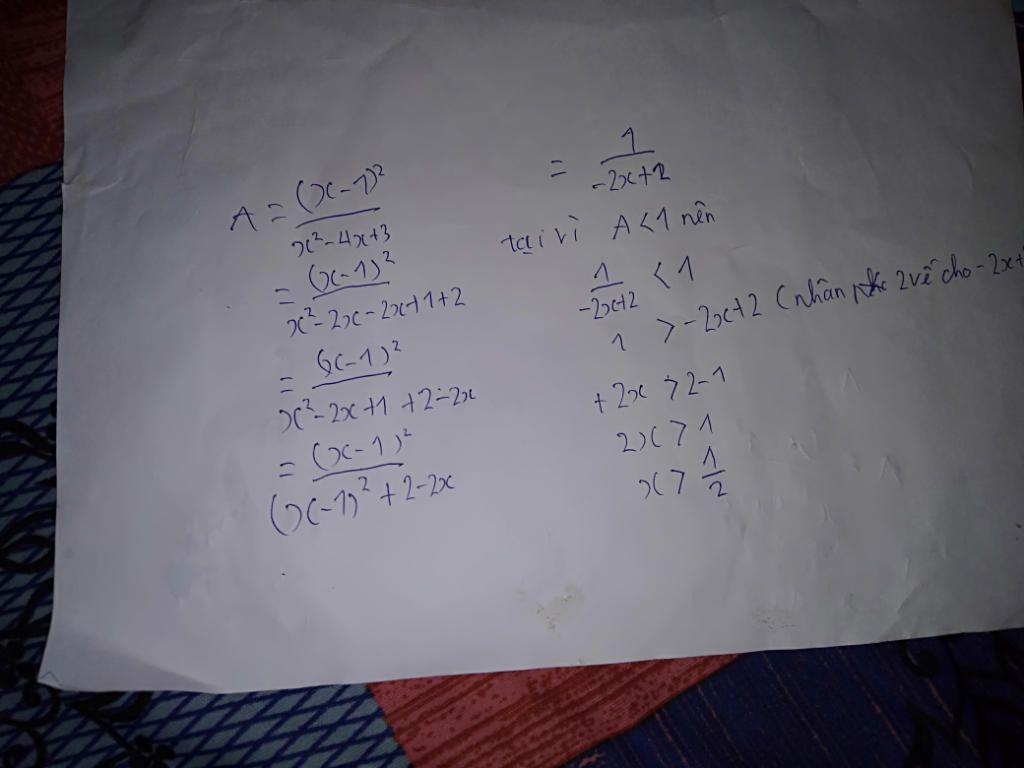 A = (x-1)² / x²-4x+3
= (x-1)² / x²-2x-2x+1+2
= (x-1)² / x²-2x+1+2-2x
= (x-1)² / (x-1)²+2-2x
= 1 / -2x+2
tại vì A < 1 nên
1 / -2x+2 < 1
1 > -2x+2 (nhân 2 vế cho -2x+
+2x > 2-1
2x > 1
x > 1/2